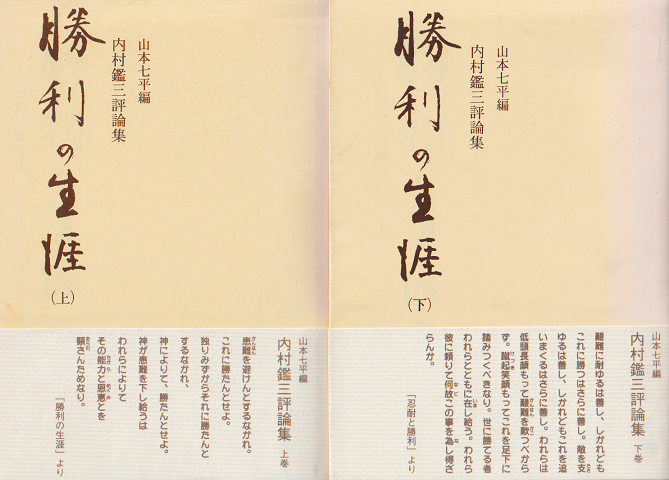 山本七平編
内村鑑三評論集
勝利の生涯
(上)
山本七平編
内村鑑三評論集 上巻
患難を避けんとするなかれ。
これに勝たんとせよ。
独りみずからそれに勝たんと
するなかれ、
神によりて、勝たんとせよ。
神が患難を下し給うは
われらによりて
その能力と恩恵とを
顕さんためなり。
「勝利の生涯」より
山本七平編
内村鑑三評論集
勝利の生涯
(下)
山本七平編
内村鑑三評論集 下巻
艱難に耐ゆるは善し、しかれども
これに勝つはさらに善し。敵を支
ゆるは善し、しかれどもこれを追
いまくるはさらに善し。われらは
低頭長顔もって艱難を歎つべから
ず。蹴起笑顔もってこれを足下に
踏みつくべきなり。世に勝てる者
われらとともに在し給う。われら
彼に頼りて何故この事を為し得ざ
らんか。
「忍耐と勝利」より